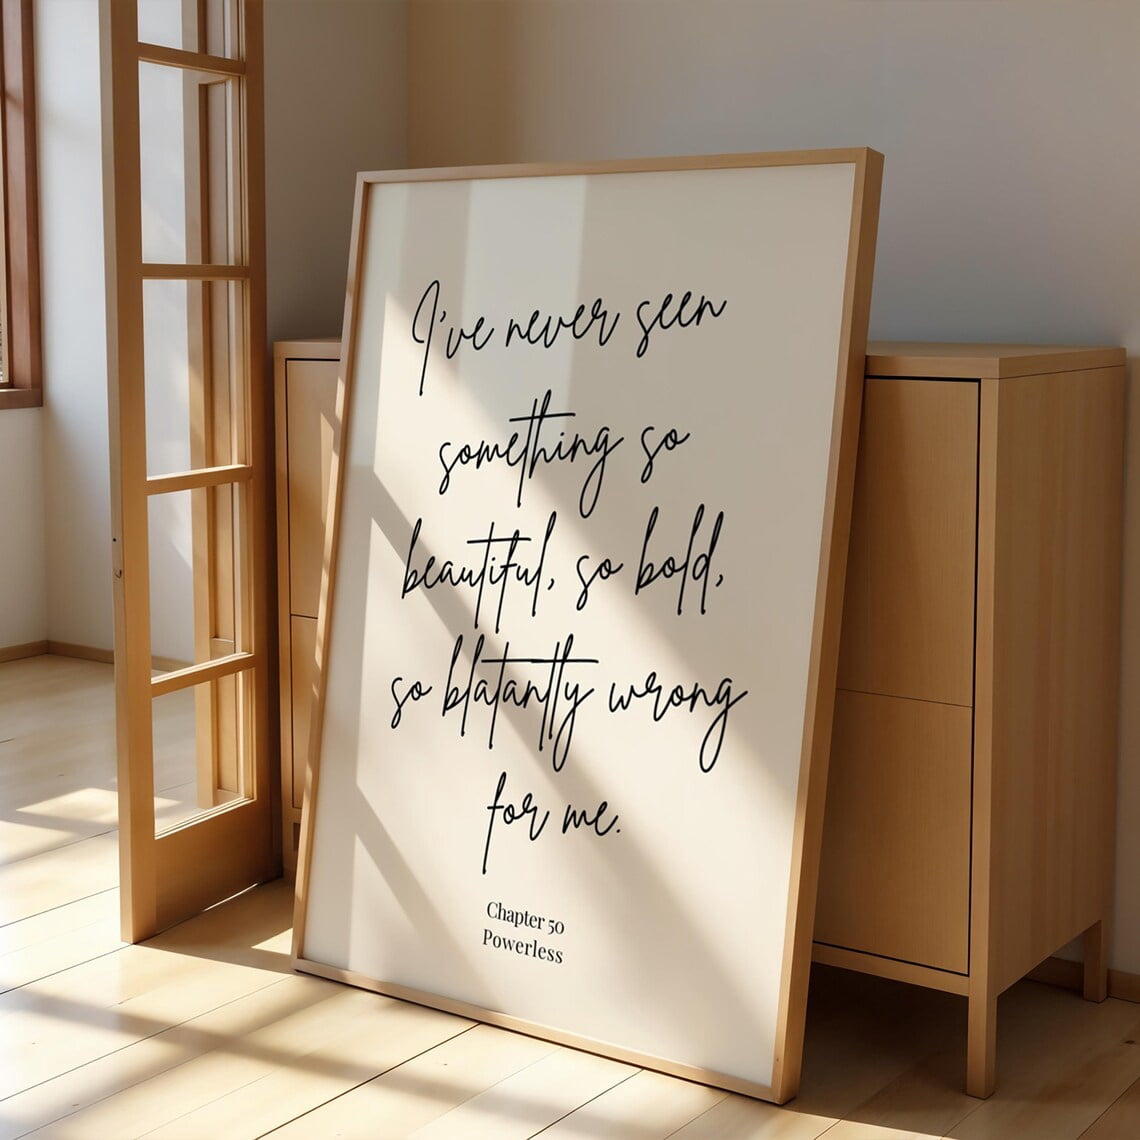 I've never seen
something so
beautiful, so bold,
so blatantly wrong
for me.
Chapter 50
Powerless